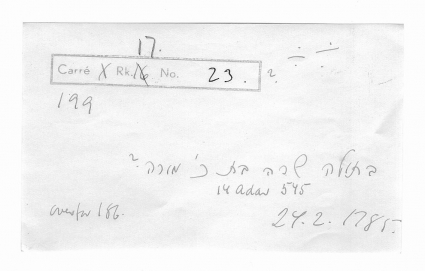 17.
Carré X Rk. No. 23. 2.
199
בתולה שרה בת כ' מורה ?
14 adar 545
186.
24.2.1785.